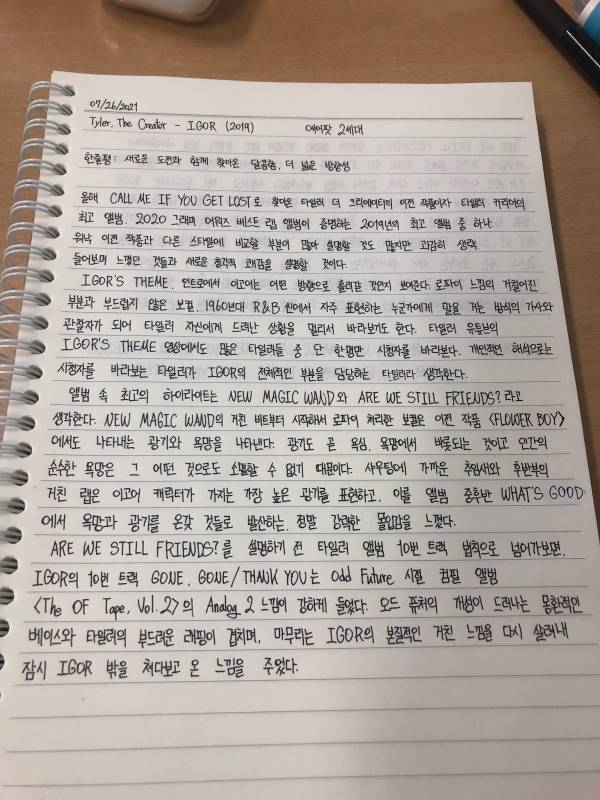 07/26/2021
Tyler, The Creator - IGOR (2019) 에어팟 2세대
한줄평: 새로운 도전과 함께 찾아온 달콤함, 더 넓은 방향성
올해 CALL ME IF YOU GET LOST로 찾아온 타일러 더 크리에이터의 이전 작품이자 타일러 커리어의
최고 앨범. 2020 그래미 어워즈 베스트 랩 앨범이 증명하는 2019년의 최고 앨범 중 하나.
워낙 이전 작품과 다른 스타일에 비교할 부분이 많아 설명할 것도 많지만 과감히 생략,
들어보며 느꼈던 것들과 새로운 청각적 쾌감을 설명할 것이다.
IGOR'S THEME, 인트로에서 이고르는 어떤 방향으로 흘러갈 것인지 보여준다. 로파이 느낌의 거칠어진
부분과 부드럽지 않은 보컬, 1960년대 R&B 씬에서 자주 표현하는 누군가에게 말을 거는 방식의 가사와
관찰자가 되어 타일러 자신에게 드러난 상황을 멀리서 바라보기도 한다. 타일러 유튜브의
IGOR'S THEME 영상에서도 많은 타일러들 중 단 한명만 시청자를 바라본다. 개인적인 해석으로는
시청자를 바라보는 타일러가 IGOR의 전체적인 부분을 담당하는 타일러라 생각한다.
앨범 속 최고의 하이라이트는 NEW MAGIC WAND와 ARE WE STILL FRIENDS? 라고
생각한다. NEW MAGIC WAND의 거친 비트부터 시작해서 로파이 처리한 보컬은 이전 작품 <FLOWER BOY>
에서도 나타나는 광기와 욕망을 나타낸다. 광기도 곧 욕심, 욕망에서 비롯되는 것이고 인간의
순수한 욕망은 그 어떤 것으로도 소멸할 수 없기 때문이다. 샤우팅에 가까운 추임새와 후반부의
거친 랩은 이고어 캐릭터가 가지는 가장 높은 광기를 표현하고, 이를 앨범 중후반 WHAT'S GOOD
에서 욕망과 광기를 온갖 것들로 발산하는, 정말 강력한 몰입감을 느꼈다.
ARE WE STILL FRIENDS? 를 설명하기 전 타일러 앨범 10번 트랙 법칙으로 넘어가보면,
IGOR의 10번 트랙 GONE, GONE/THANK YOU는 Odd Future 시절 컴필 앨범
<The OF Tape, Vol. 2>의 Analog 2 느낌이 강하게 들었다. 오드 퓨처의 개성이 드러나는 몽환적인
베이스와 타일러의 부드러운 래핑이 겹치며, 마무리는 IGOR의 본질적인 거친 느낌을 다시 살려내
잠시 IGOR 밖을 쳐다보고 온 느낌을 주었다.